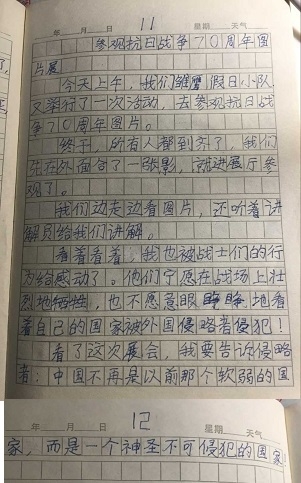 年 月 日 11 星期 天气
参观抗日战争70周年图
片展
今天上午，我们雏鹰假日小队
又举行了一次活动，去参观抗日战
争70周年图片。
终于，所有人都到齐了，我们
先在外面合了一张影，就进展厅参
观了。
我们边走边看图片，还听着讲
解员给我们讲解。
看着看着，我也被战士们的行
为给感动了。他们宁愿在战场上壮
烈地牺牲，也不愿意眼睁睁地看
着自己的国家被外国侵略者侵犯！
看了这次展会，我要告诉侵略
者：中国不再是以前那个软弱的国
年 月 日 12 星期 天气
家，而是一个神圣不可侵犯的国家！